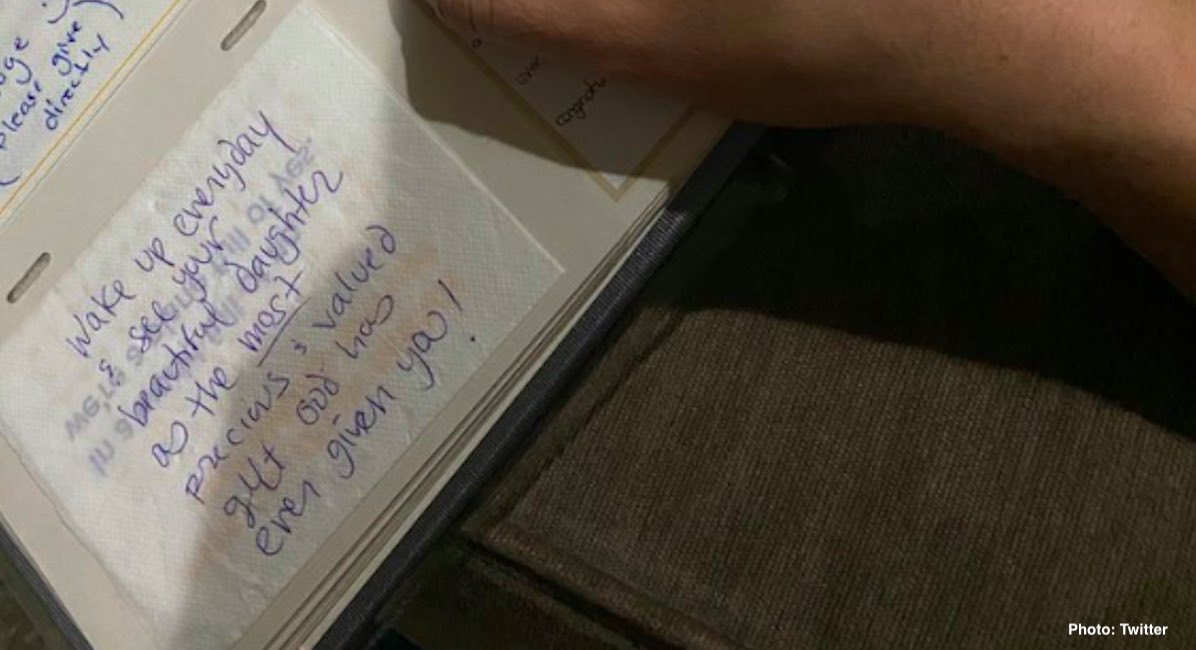 (please give
directly
Wake up everyday
& see your
beautiful daughter
as the most
precious & valued
gift God has
ever given you!
over
congrats
Photo: Twitter